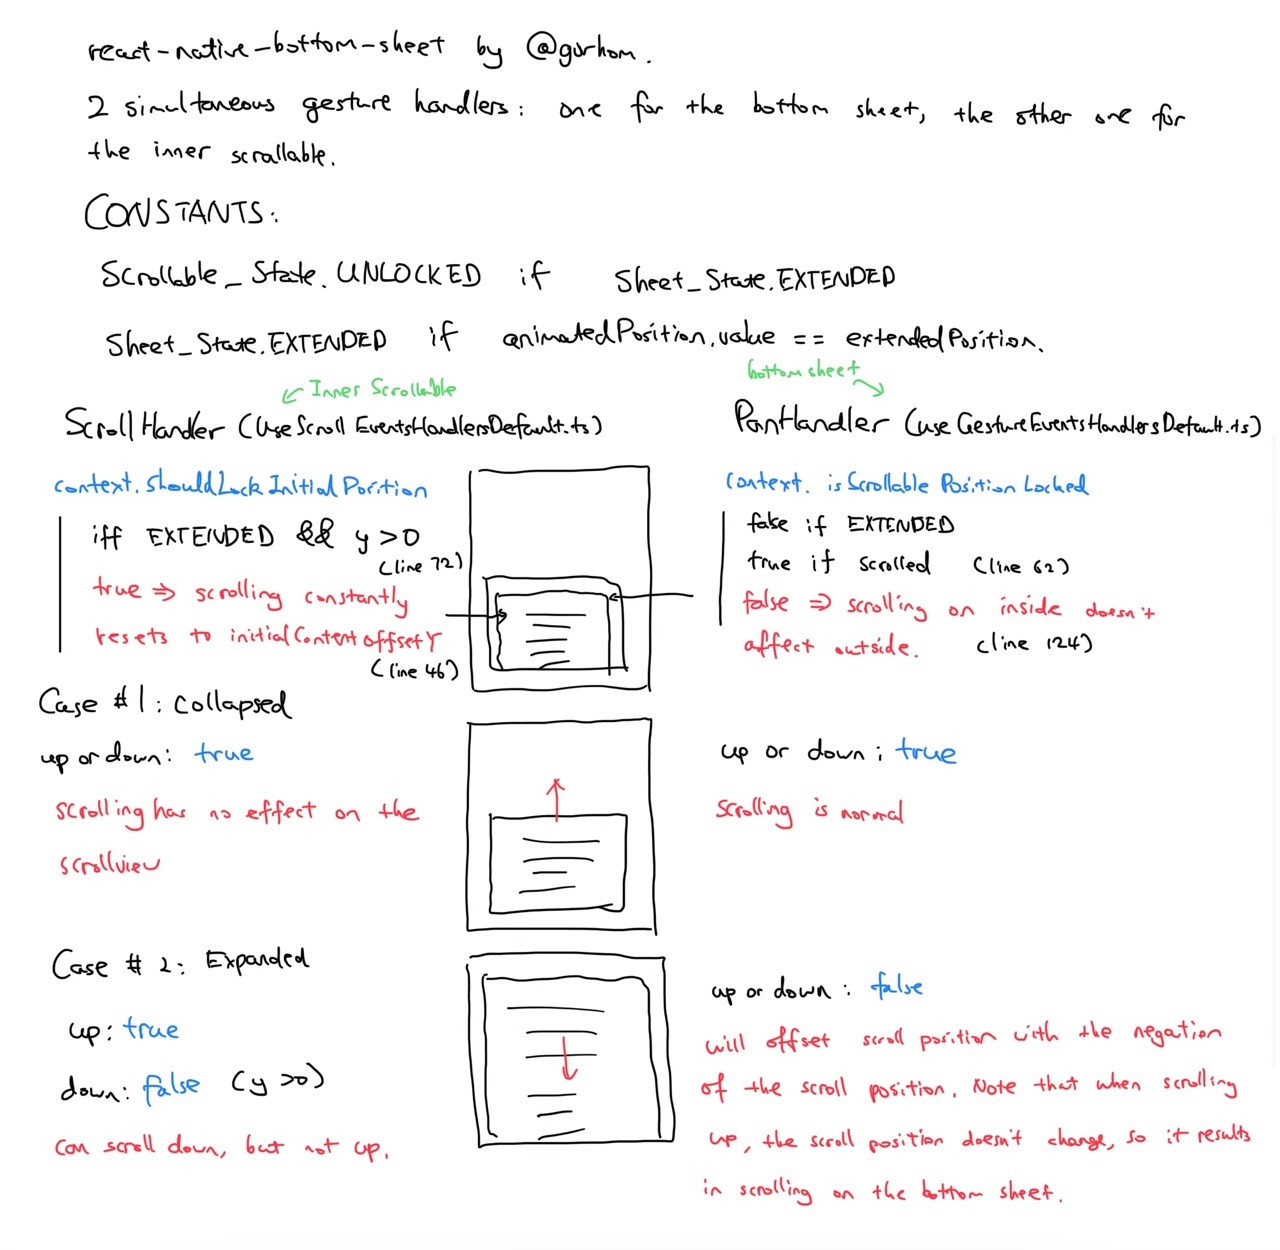 react-native-bottom-sheet by @gorhom.
2 simultaneous gesture handlers: one for the bottom sheet, the other one for
the inner scrollable.
CONSTANTS:
Scrollable_State.UNLOCKED if Sheet_State.EXTENDED
Sheet_State.EXTENDED if animatedPosition.value == extendedPosition.
Inner Scrollable
ScrollHandler (UseScrollEventsHandlersDefault.ts)
context.ShouldLockInitialPosition
iff EXTENDED && y>0
(line 72)
true ⇒ scrolling constantly
resets to initialContentOffsetY
(line 46)
bottom sheet
PanHandler (useGestureEventsHandlersDefault.ts)
Context.isScrollablePositionLocked
false if EXTENDED
true if scrolled (line 62)
false ⇒ scrolling on inside doesn't
affect outside. (line 124)
Case #1: Collapsed
up or down: true
scrolling has no effect on the
scrollview
up or down: true
Scrolling is normal
Case #2: Expanded
up: true
down: false (y>0)
can scroll down, but not up.
up or down: false
will offset scroll position with the negation
of the scroll position. Note that when scrolling
up, the scroll position doesn't change, so it results
in scrolling on the bottom sheet.